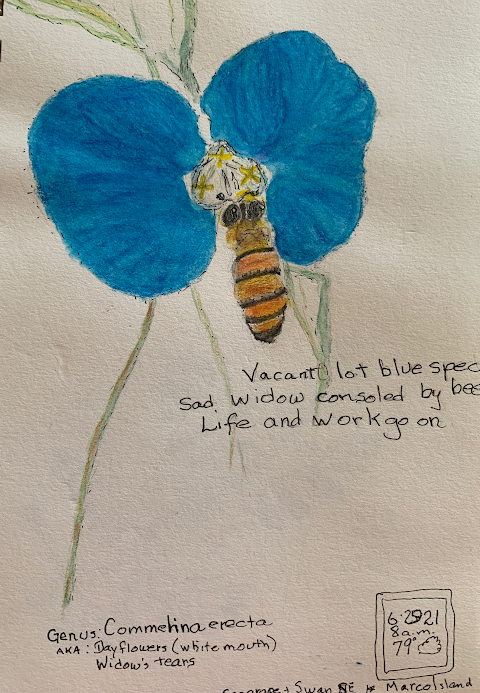 Vacant lot blue spec
Sad widow consoled by bee
Life and work go on
Genus: Commelina erecta
AKA: Dayflowers (white mouth)
Widow's tears
6·29·21
8 a.m.
79°
Swan SE Marco Island